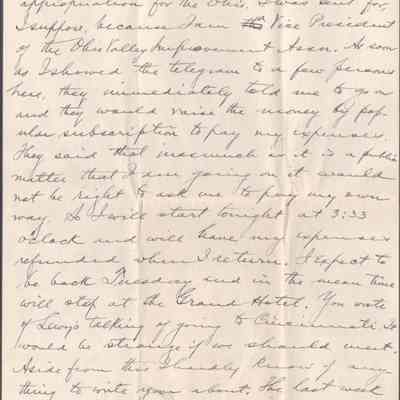 appropriation for the Ohio. I was sent for,
I suppose, because I am the Vice President
of the Ohio Valley Improvement Assn. As soon
as I showed the telegram to a few persons
here, they immediately told me to go on
and they would raise the money by pop-
ular subscription to pay my expenses.
They said that inasmuch as it is a public
matter that I am going on it would
not be right to ask me to pay my own
way. So I will start tonight at 3:33
o'clock and will have my expenses
refunded when I return. I expect to
be back Tuesday and in the mean time
will stop at the Grand Hotel. You wrote
of Levy's talking of going to Cincinnati. It
would be strange if we should meet.
Aside from this I hardly know of any
thing to write you about. The last week